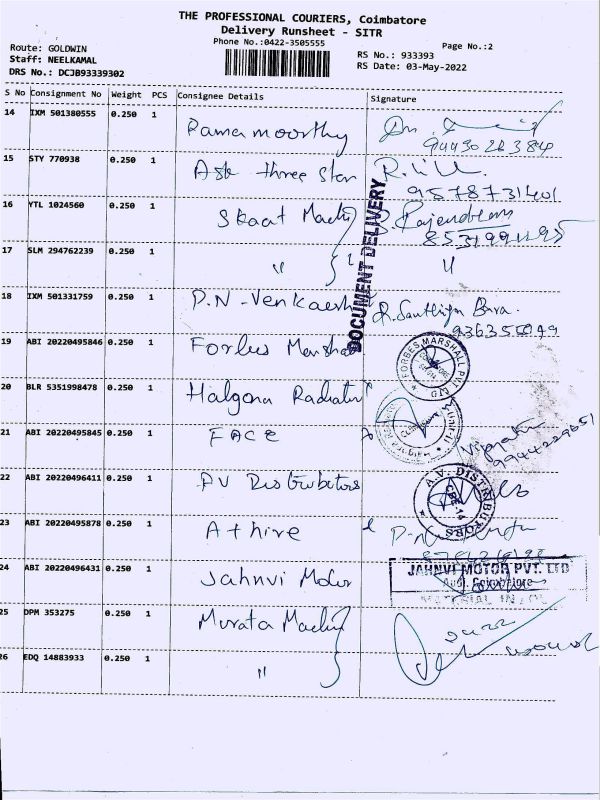 THE PROFESSIONAL COURIERS, Coimbatore
Delivery Runsheet - SITR
Phone No.:0422-3505555
Page No.:2
Route: GOLDWIN
Staff: NEELKAMAL
DRS No.: DCJB93339302
RS No.: 933393
RS Date: 03-May-2022
S No Consignment No Weight PCS Consignee Details Signature
14 IXM 501380555 0.250 1 Ramamoorthy
15 STY 770938 0.250 1 Ask three star
9578731401
16 YTL 1024560 0.250 1 Skaat Machi R. Rajendran
17 SLM 294762239 0.250 1 " "
DOCUMENT DELIVERY
18 IXM 501331759 0.250 1 P.N-Venkaesh R. Santhiya Bara.
19 ABI 20220495846 0.250 1 Forbes Marshal
FORBES MARSHALL PVT LTD
20 BLR 5351998478 0.250 1 Halgona Radiator
21 ABI 20220495845 0.250 1 FACE
9944229651
22 ABI 20220496411 0.250 1 AV Distributors
A.V. DISTRIBUTORS
CBE-14
23 ABI 20220495878 0.250 1 Athire
24 ABI 20220496431 0.250 1 Jahnvi Motor
JAHNVI MOTOR PVT. LTD
Audi Coimbatore
MATERIAL IN /
25 DPM 353275 0.250 1 Murata Machi
26 EDQ 14883933 0.250 1 "